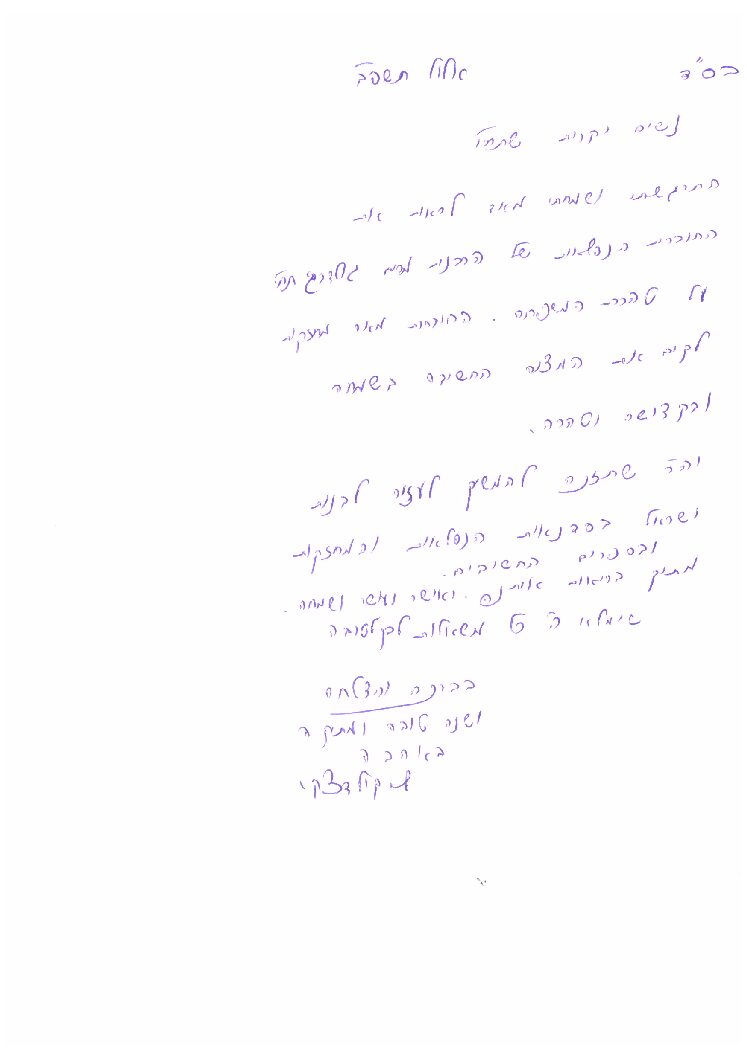 בס"ד אלול תשפב
נשים יקרות שתחי'
התרגשתי ושמחתי מאד לראות את
החוברות הנפלאות של הרבנית מרים תחי'
על טהרת המשפחה. החוברות מאוד מחזקות
לקיים את המצוה החשובה בשמחה
ובקדושה וטהרה.
והר שתזכנה להמשיך לעזור לבנות
ישראל בסדנאות הנפלאות והמחזקות
ובספרים החשובים.
מתוך בריאות ואושר ועושר ושמחה.
שימלא ה' כל משאלות לבן לטובה
בברכה והצלחה
ושנה טובה ומתוקה
באהבה
קולדצקי